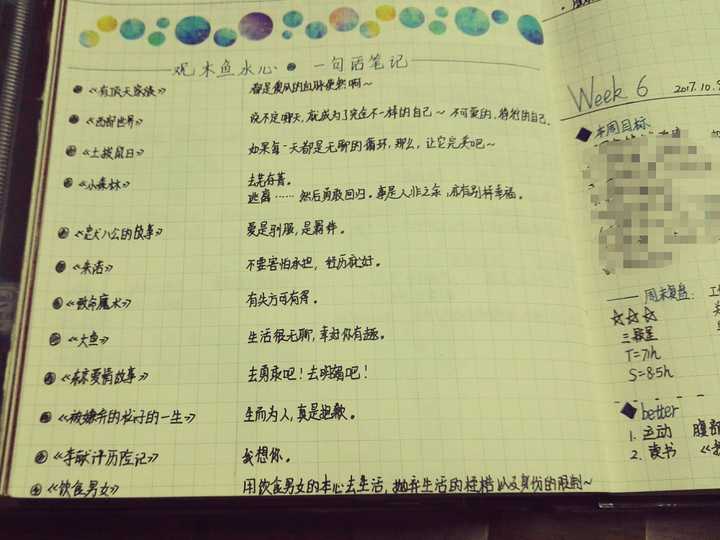 观木鱼水心 · 一句话笔记
《有顶天家族》 都是傻瓜的血脉使然啊~
《西部世界》 说不定哪天,就成为了完全不一样的自己~ 不可爱的、特别的自己.
《土拨鼠日》 如果每一天都是无聊的循环,那么,让它完美吧~
《小森林》 去芜存菁。
逃离……然后勇敢回归。事是人非之余,亦有别样幸福。
《忠犬八公的故事》 爱是别服,是羁绊。
《朱诺》 不要害怕承担,经历就好。
《致命魔术》 有失方可有得。
《大鱼》 生活很无聊,幸好你有趣。
《东京爱情故事》 去勇敢吧!去拥抱吧!
《被嫌弃的松子的一生》 生而为人,真是抱歉。
《李献计历险记》 我想你。
《饮食男女》 用饮食男女的本心去生活,抛弃生活的桎梏以及身份的限制~
Week 6 2017.10.
本周目标
周末复盘:
☆☆☆
三颗星
T=71h
S=8.5h
better
1. 运动 腹部
2. 读书